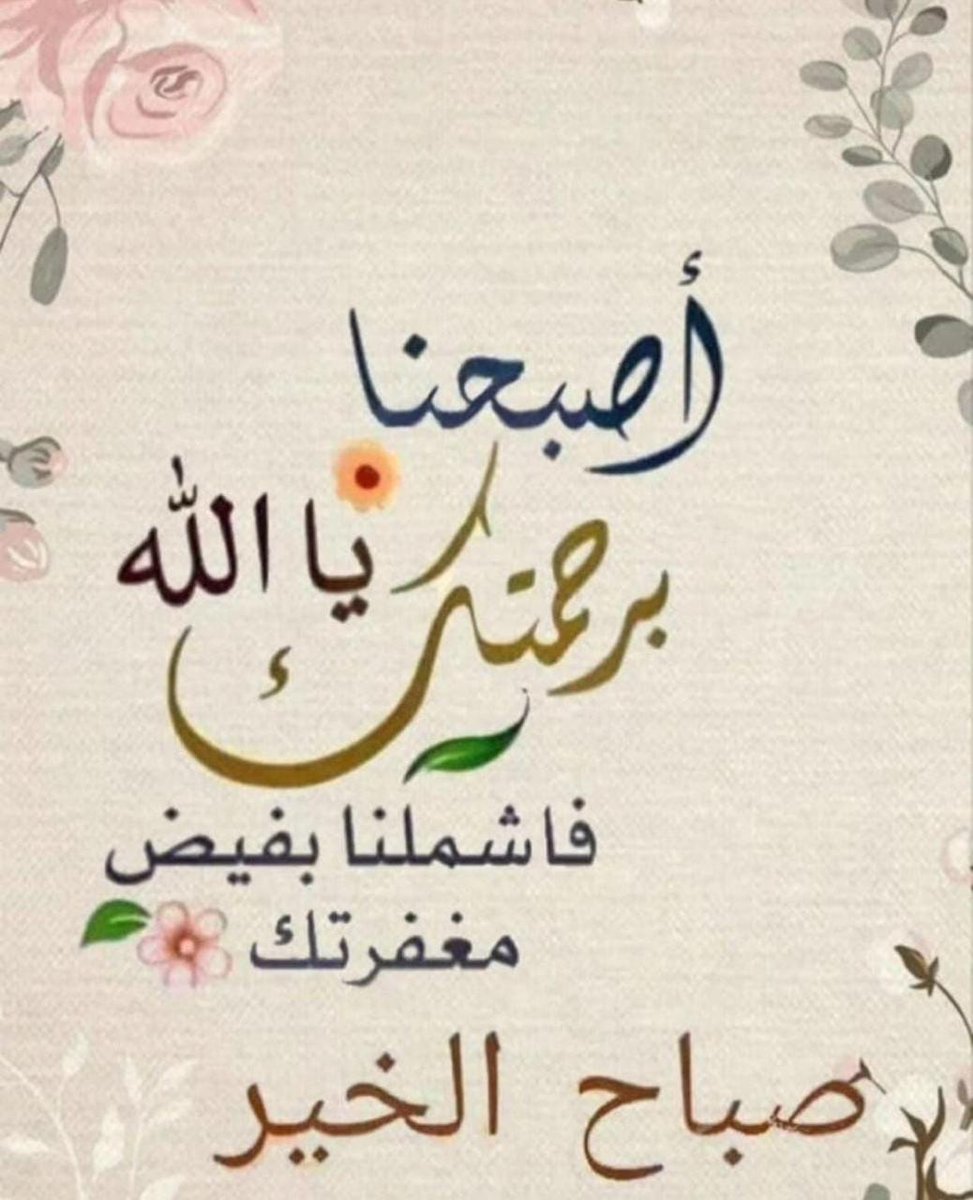 أصبحنا
برحمتك يا الله
فاشملنا بفيض
مغفرتك
صباح الخير